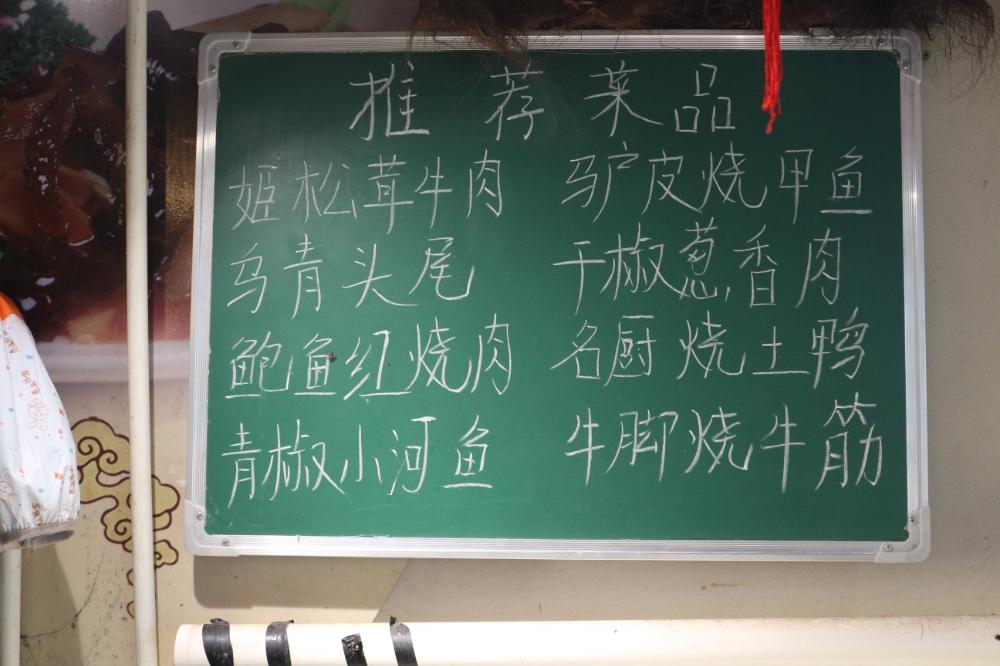 推荐菜品
姬松茸牛肉 驴皮烧甲鱼
乌青头尾 干椒葱香肉
鲍鱼红烧肉 名厨烧土鸭
青椒小河鱼 牛脚烧牛筋